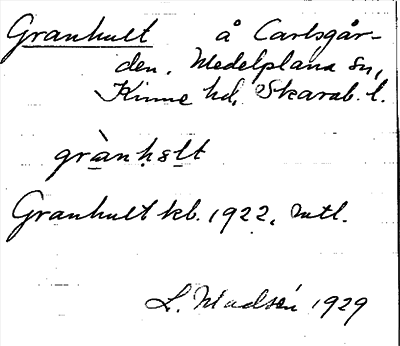 Granhult å Carlsgår-
den. Medelplana sn,
Kinne hd, Skarab. l.
grànhslt
Granhult kb. 1922, mtl.
L. Madsén 1929